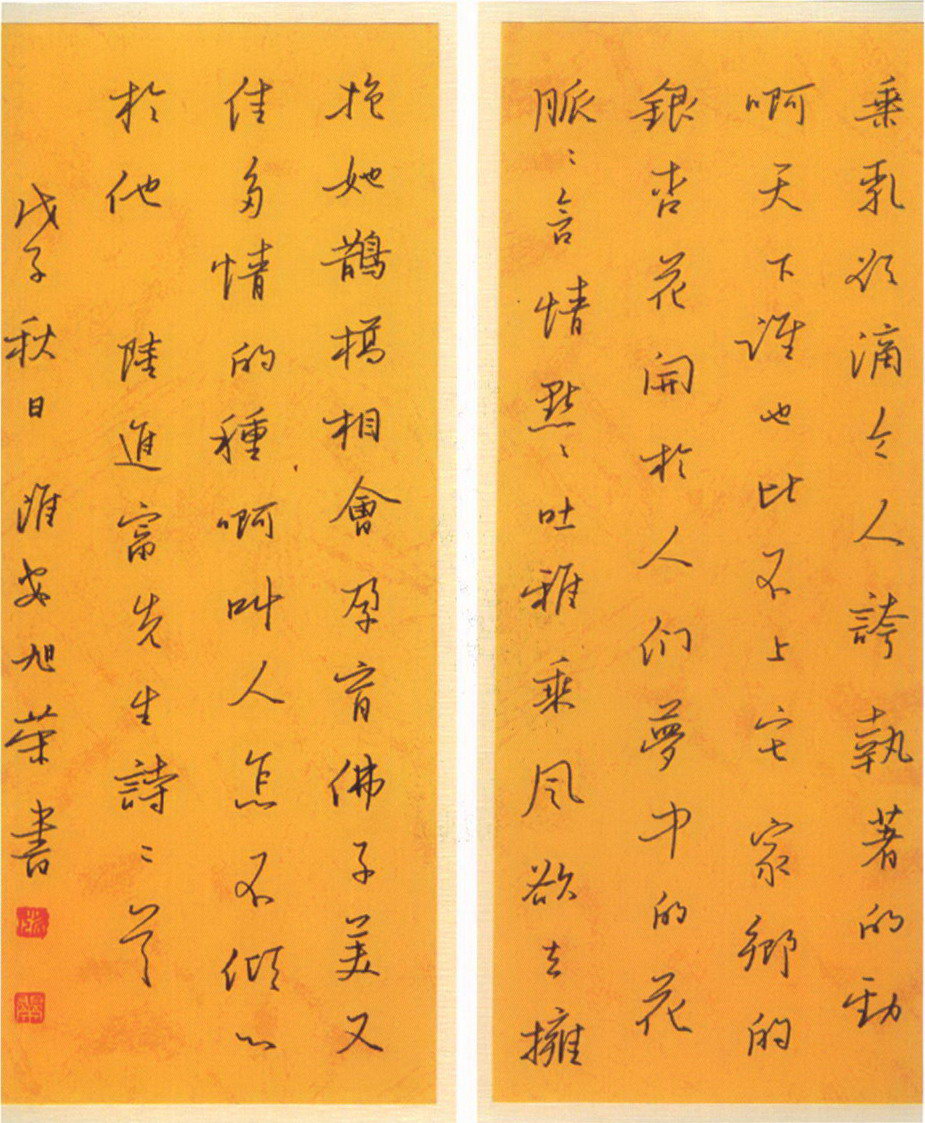 垂乳欲滴令人誇執著的勁
啊天下誰也比不上它家鄉的
銀杏花開於人們夢中的花
脈〻含情默〻吐雅乘风欲去擁
抱她鵲橋相會孕育佛子美又
佳多情的種啊叫人怎不傾心
於他 陸進富先生詩〻
戊子秋日 淮安旭荣書